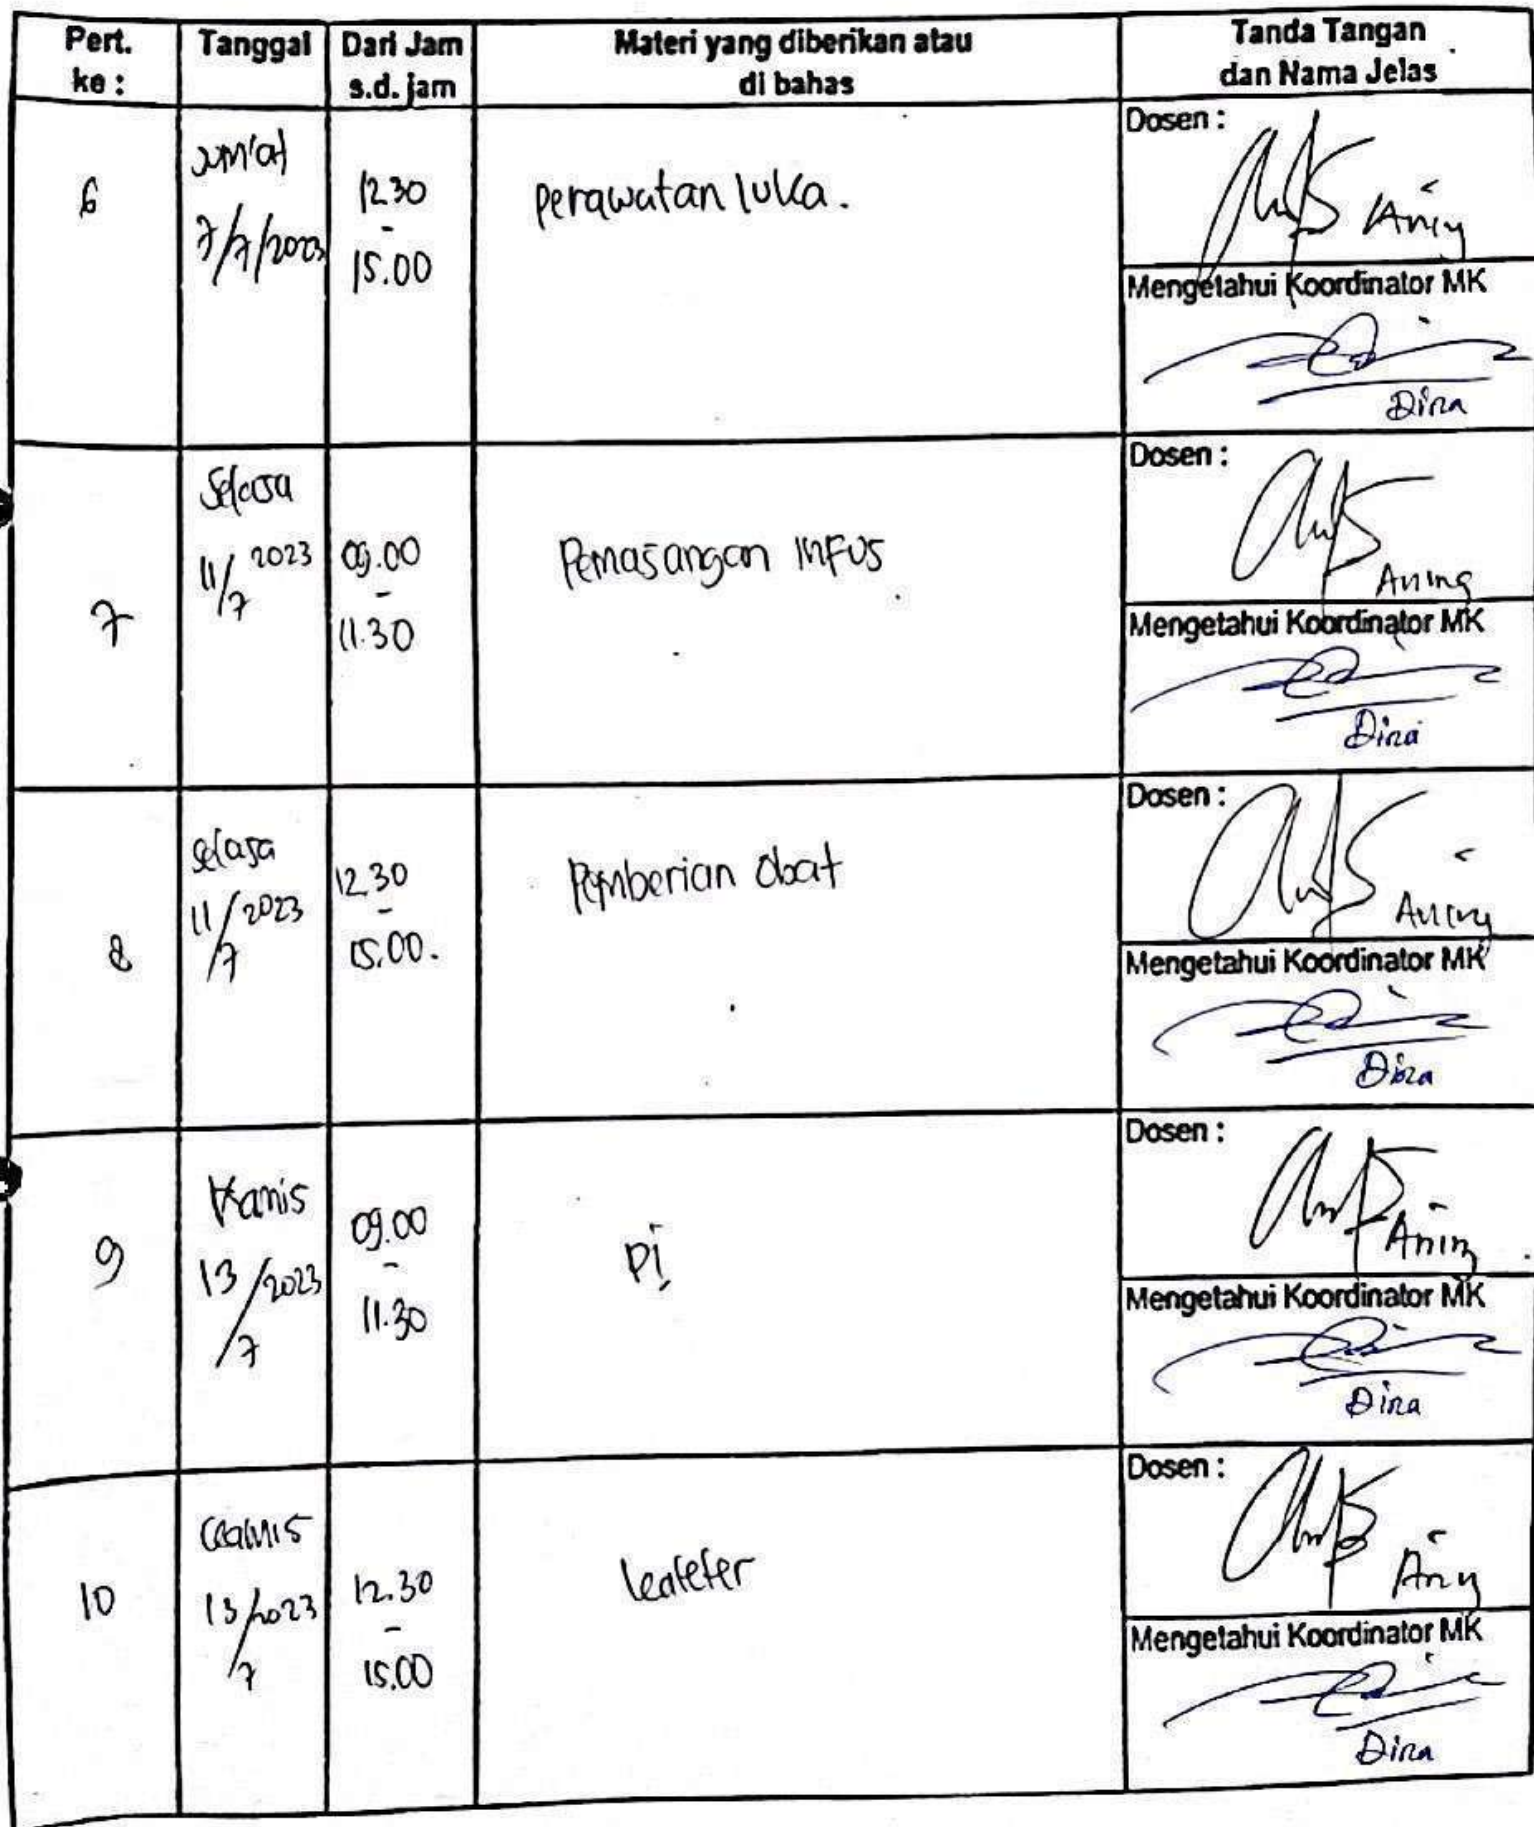 Pert.
ke :
Tanggal
Dari Jam
s.d. jam
Materi yang diberikan atau
di bahas
Tanda Tangan
dan Nama Jelas
6
Jum'at
7/7/2023
12.30
-
15.00
perawatan luka.
Dosen :
Aning
Mengetahui Koordinator MK
Dina
7
Selasa
11/7 2023
09.00
-
11.30
Pemasangan infus
Dosen :
Aning
Mengetahui Koordinator MK
Dina
8
Selasa
11/7 2023
12.30
-
15.00.
Pemberian Obat
Dosen :
Aning
Mengetahui Koordinator MK
Dina
9
Kamis
13/7 2023
09.00
-
11.30
Pi
Dosen :
Aning
Mengetahui Koordinator MK
Dina
10
Kamis
13/7 2023
12.30
-
15.00
Dosen :
Aning
Mengetahui Koordinator MK
Dina